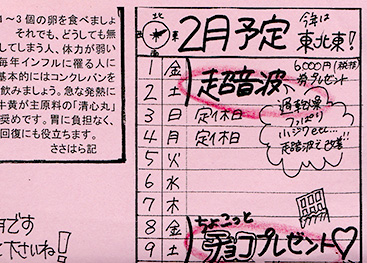 1～3個の卵を食べましょ
それでも、どうしても無
してしまう人、体力が弱い
毎年インフルに罹る人に
基本的にはコンクレバンを
飲みましょう。急な発熱に
牛黄が主原料の「清心丸」
奨めです。胃に負担なく、
回復にも役立ちます。
ささはら記
です
下さいね!
北
西
東
南
2月予定
今年は
東北東!
1 金
超音波
6,000円(税抜)
券プレゼント
2 土
3 日 定休日
4 月 定休日
5 火
6 水
7 木
運動効果
小ジワetc...
走路波で改善!!
8 金
ちょこっと
9 土
チョコプレゼント♡